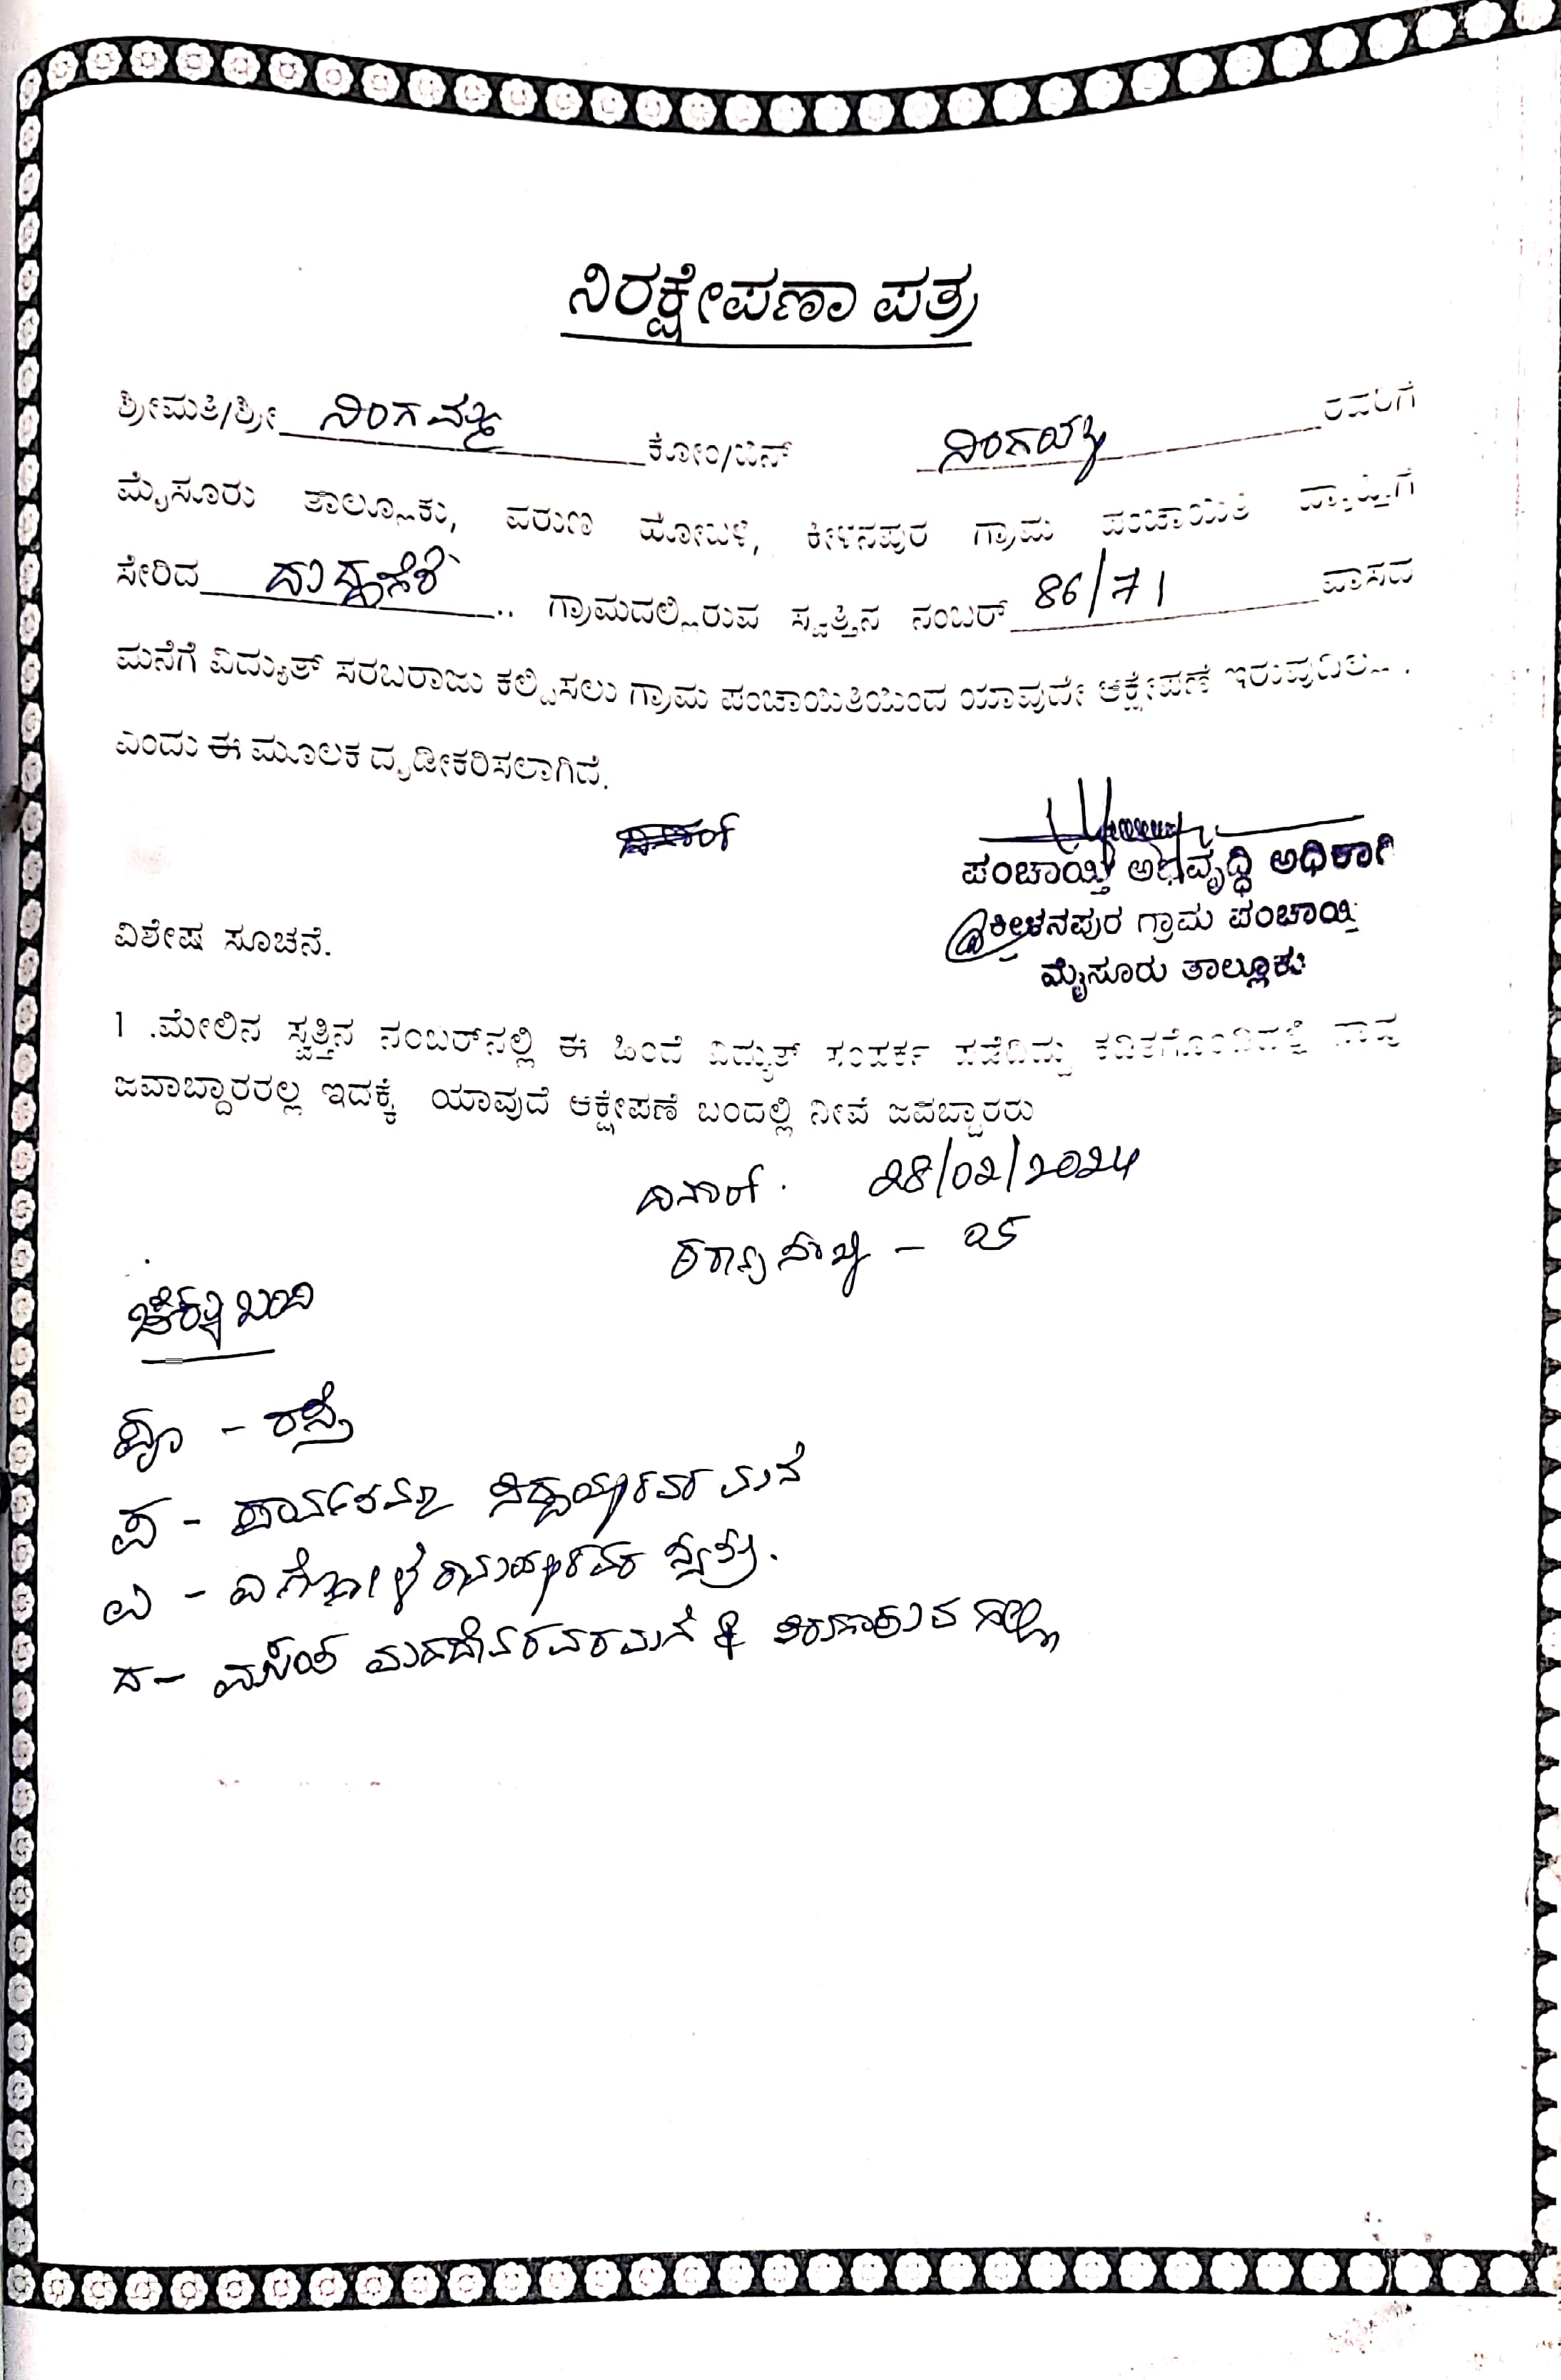 ನಿರಕ್ಷೇಪಣಾ ಪತ್ರ
ಶ್ರೀಮತಿ/ಶ್ರೀ ನಿಂಗಮ್ಮ ಕೋಂ/ಬಿನ್ ನಿಂಗಯ್ಯ ರವರಿಗೆ
ಮೈಸೂರು ತಾಲ್ಲೂಕು, ವರುಣ ಹೋಬಳಿ, ಕೀಳನಪುರ ಗ್ರಾಮ ಪಂಚಾಯಿತಿ ವ್ಯಾಪ್ತಿಗೆ
ಸೇರಿದ .. ಗ್ರಾಮದಲ್ಲಿರುವ ಸ್ವತ್ತಿನ ನಂಬರ್ 86/71 ವಾಸದ
ಮನೆಗೆ ವಿದ್ಯುತ್ ಸರಬರಾಜು ಕಲ್ಪಿಸಲು ಗ್ರಾಮ ಪಂಚಾಯಿತಿಯಿಂದ ಯಾವುದೇ ಆಕ್ಷೇಪಣೆ ಇರುವುದಿಲ್ಲ .
ಎಂದು ಈ ಮೂಲಕ ದೃಡೀಕರಿಸಲಾಗಿದೆ.
ಪಂಚಾಯ್ತಿ ಅಭಿವೃದ್ಧಿ ಅಧಿಕಾರಿ
ಕೀಳನಪುರ ಗ್ರಾಮ ಪಂಚಾಯ್ತಿ
ಮೈಸೂರು ತಾಲ್ಲೂಕು
ವಿಶೇಷ ಸೂಚನೆ.
1 .ಮೇಲಿನ ಸ್ವತ್ತಿನ ನಂಬರ್‌ನಲ್ಲಿ ಈ ಹಿಂದೆ ವಿದ್ಯುತ್ ಸಂಪರ್ಕ ಪಡೆದಿದ್ದು ಕಡಿತಗೊಂಡಿದ್ದಲ್ಲಿ ನಾವು
ಜವಾಬ್ದಾರರಲ್ಲ ಇದಕ್ಕೆ ಯಾವುದೆ ಆಕ್ಷೇಪಣೆ ಬಂದಲ್ಲಿ ನೀವೆ ಜವಬ್ದಾರರು
ದಿನಾಂಕ 28/02/2024
ಕ್ರಮ ಸಂಖ್ಯೆ - 25
ಚೆಕ್ಕುಬಂದಿ
ಪೂ - ರಸ್ತೆ
ಪ - ಸಿದ್ದಯ್ಯರವರ ಮನೆ
ಉ - ಸ್ವತ್ತು.
ದ - ಮಹದೇವರವರ ಮನೆ & ಹಳ್ಳ